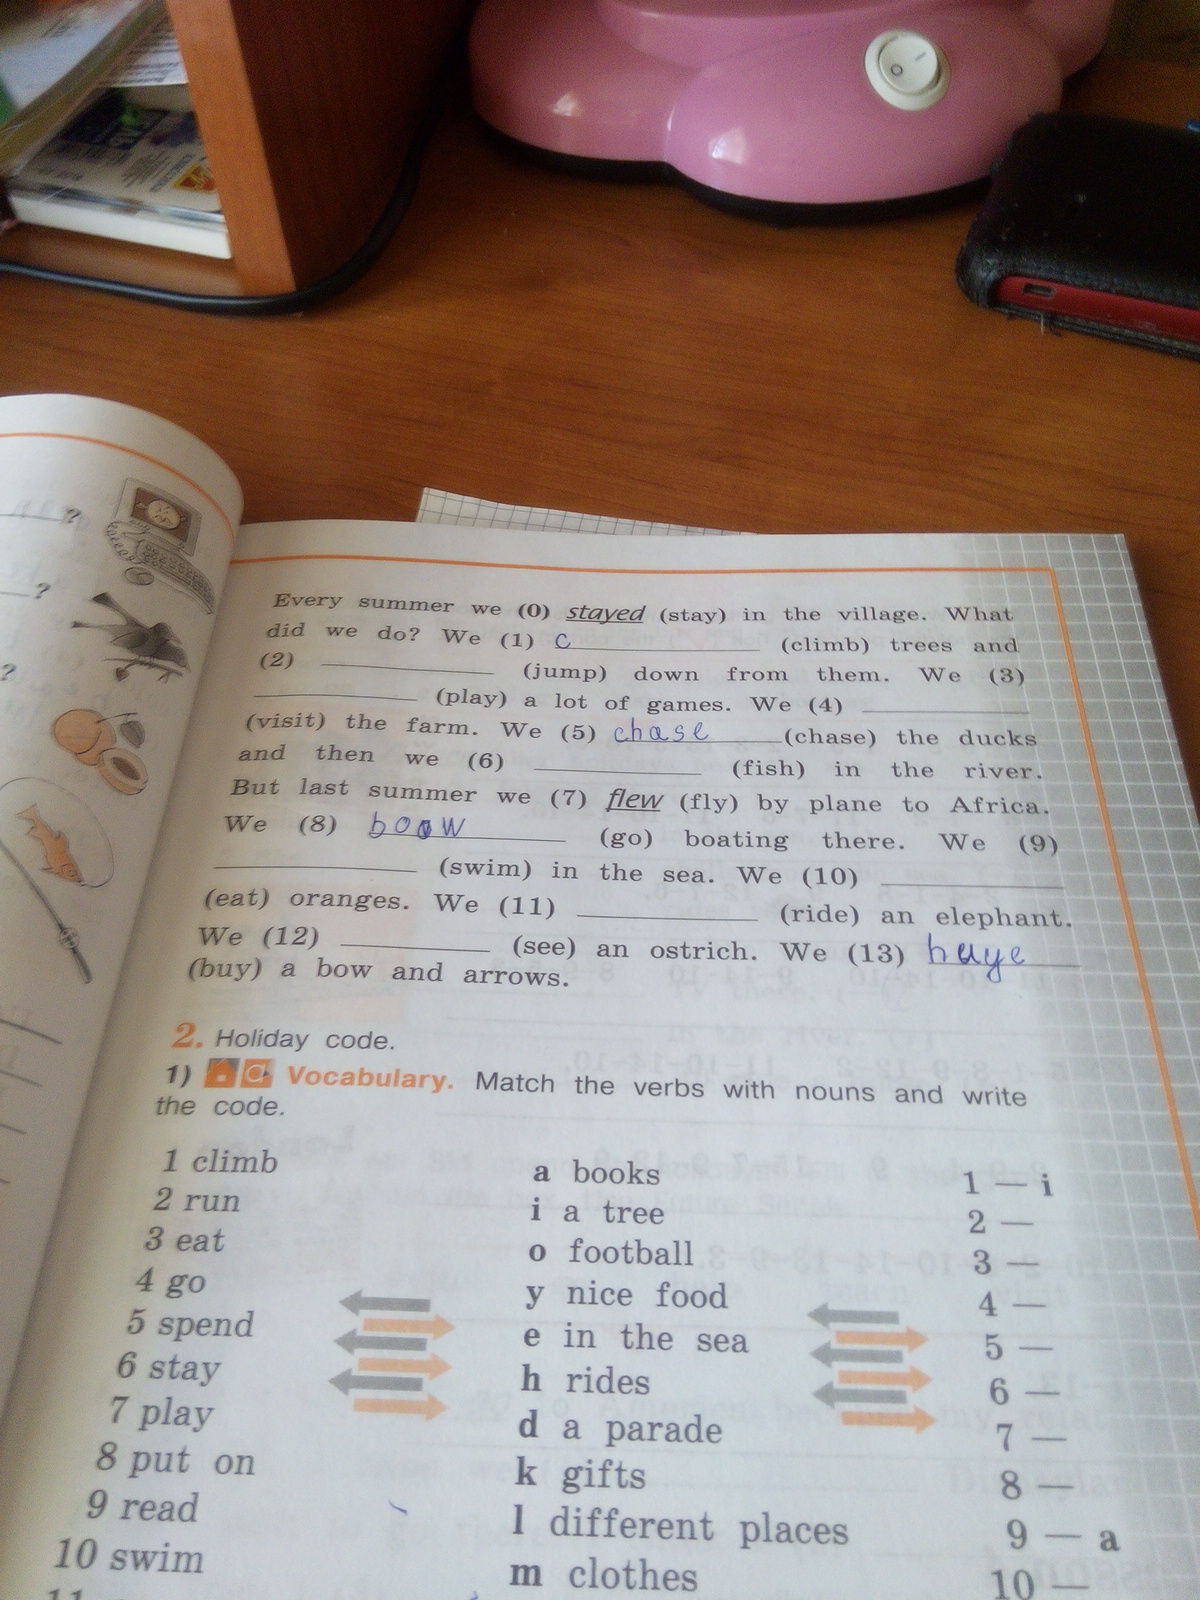 Every summer we (0) stayed (stay) in the village. What
did we do? We (1) c (climb) trees and
(2) (jump) down from them. We (3)
(play) a lot of games. We (4)
(visit) the farm. We (5) chase (chase) the ducks
and then we (6) (fish) in the river.
But last summer we (7) flew (fly) by plane to Africa.
We (8) (go) boating there. We (9)
(swim) in the sea. We (10)
(eat) oranges. We (11) (ride) an elephant.
We (12) (see) an ostrich. We (13) (buy) a bow and arrows.
2. Holiday code.
1) Vocabulary. Match the verbs with nouns and write
the code.
1 climb
2 run
3 eat
4 go
5 spend
6 stay
7 play
8 put on
9 read
10 swim
a books
i a tree
o football
y nice food
e in the sea
h rides
d a parade
k gifts
l different places
m clothes
1 — i
2 —
3 —
4 —
5 —
6 —
7 —
8 —
9 — a
10 —